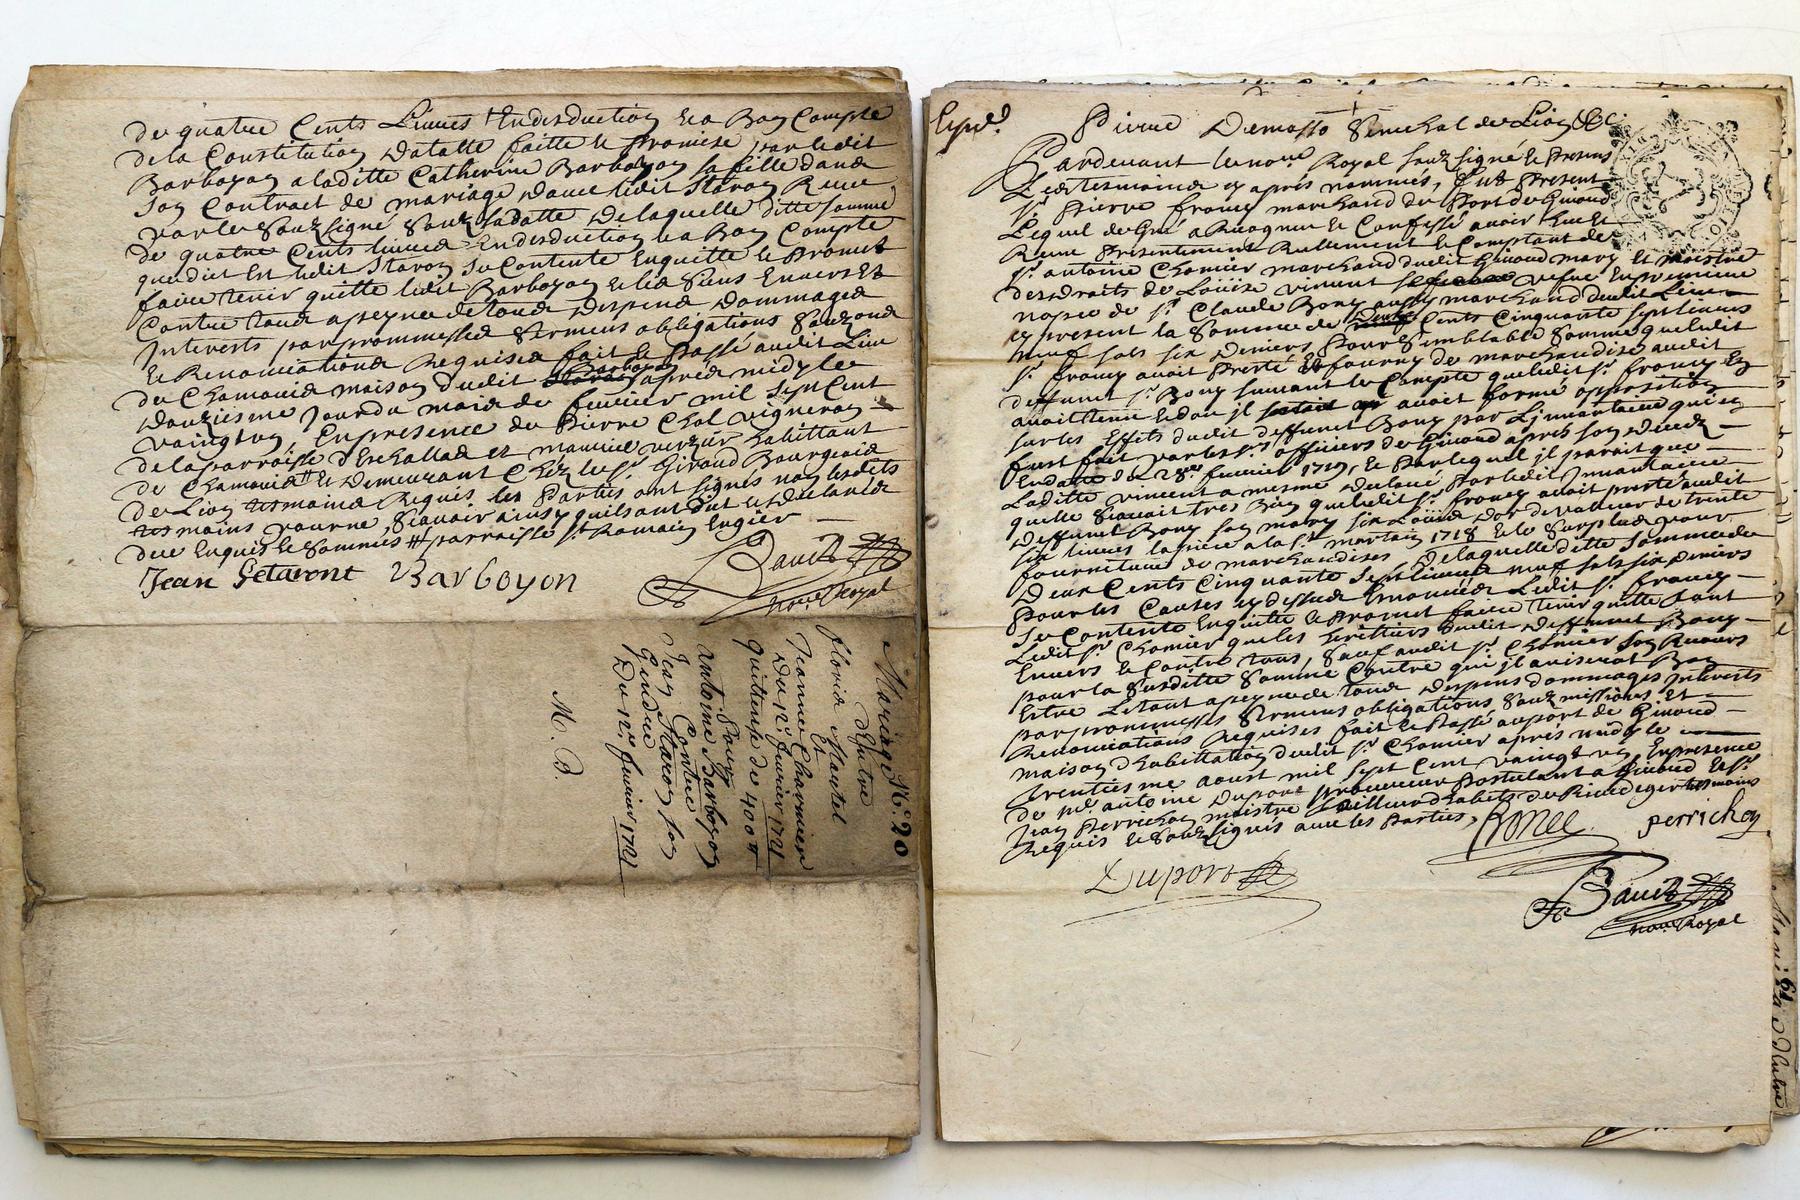 de quatre Cents Livres Endeduction et a Bon Compte
de la Constitution datalle faitte et Promise par ledit
Barboyon a laditte Catherine Barboyon sa fille dans
son Contract de mariage avec ledit Staron Receu
par le Sousigné Sous la datte de laquelle ditte somme
de quatre Cents livres Endeduction et a Bon Compte
que dict Est ledit Staron Se Contente Enquitte et Promet
faire tenir quitte ledit Barboyon et les Siens Envers Et
Contre tous a peyne de tous despens dommages
Interests par prommesses Serments obligations
et Renonciations Requises fait et Passé audit Lieu
de Chamouis maison dudit Barboyon apres midy le
douziesme Jour du mois de fevrier mil sept Cent
vaingt un, En presence de Pierre Chol vigneron
de la parroisse d'Eschallas et maurice verzier habittant
de Chamouis et demeurant Chez le Sr Giraud Bourgeois
de Lion tesmoins Requis les Parties ont signes non lesdits
tesmoins pour ne sçavoir ainsy quils ont dit et déclaré
due Enquis et Sommés parroisse St Romain Engier
Jean Setaront Barboyon
Bauds
nore Royal
Mariage N. 20
d'Entre
floris Martel
Et
Jeanne Charvier
du 12e fevrier 1721
quittance de 400 tt
Antoine Barboyon
Contre
Jean Staron son
Gendre
Du 12e fevrier 1721
M. B.
Exppé.
Pierre Demasso Senechal de Lion &c
Pardevant le nore Royal souz signé et Presens
Les tesmoins cy apres nommés, fut Present
sr. Pierre francy marchand du Port de Givord
Lequel de Gré a Recogneu et Confessé avoir heu Et
Receu Presentement Reellement et Comptant de
sr. antoine Chomier marchand dudit Givord mary Et maistre
des droits de Loüise vincent vefve En premiere
nopce de sr. Claude Bony aussy marchand dudit Lieu
cy present la Somme de Cents Cinquante sept livres
neuf sols six Deniers Pour Semblable Somme que ledit
sr. francy avoit Presté et fourny de marchandise audit
deffunct sr. Bony suivant le Compte que ledit sr. francy En
avoit tenu et dou il avoit formé opposition
sur les Effets dudit deffunct Bony par L'jnvantaire qui en
fust fait par les srs. officiers de Givord apres son deceds
En datte du 28e fevrier 1719, et Par lequel il paroit que
Laditte vincent a mesme declaré Par ledit Jnvantaire
quelle Scavoit tres Bien que ledit sr. francy avoit presté audit
deffunct Bony son mary six Loüis d'or de valleur de trente
six livres la piece a la St martin 1718 et le Surplus pour
fourniture de marchandises De laquelle ditte Somme de
Deux Cents Cinquante sept livres neuf sols six deniers
Pour les Causes cy dessus Enoncées Ledit sr. francy
Se Contente Enquitte et Promet faire tenir quitte tant
Ledit sr. Chomier que les heritiers dudit deffunct Bony
Envers et Contre tous, Sauf audit sr. Chomier son Recours
pour la Susditte Somme Contre qui jl aviserat Bon
Estre Le tout a peyne de tous despens dommages Interests
par promesses Serments obligations Souzmissions Et
Renonciations Requises fait et Passé au port de Givord
maison d'habittation dudit sr. Chomier apres midy le
trentiesme aoust mil sept Cent vaingt un, En presence
de me antoine Duport procureur Postulant a Givord Et sr.
Jean Perrichon maistre tailleur d'habits de Rivedegier tesmoins
Requis et Souzsignés avec les Parties,
perrichon
Duport
Bauds
nore Royal